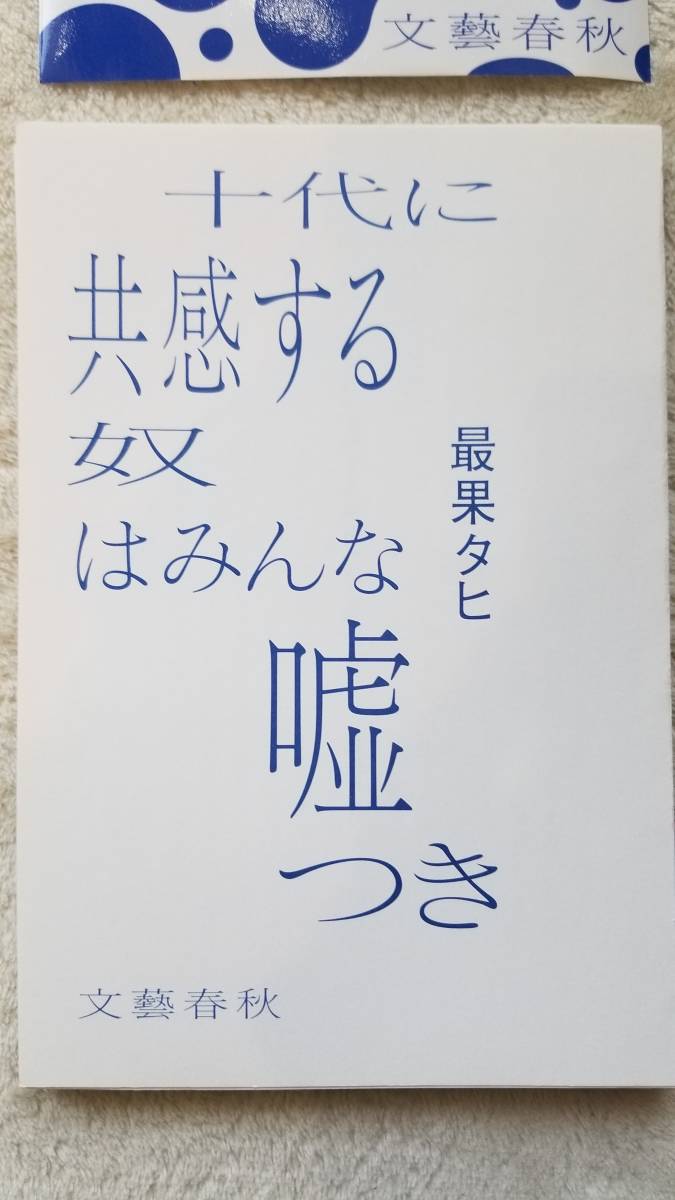 文藝春秋
十代に
共感する
奴
はみんな
嘘
つき
最果タヒ
文藝春秋